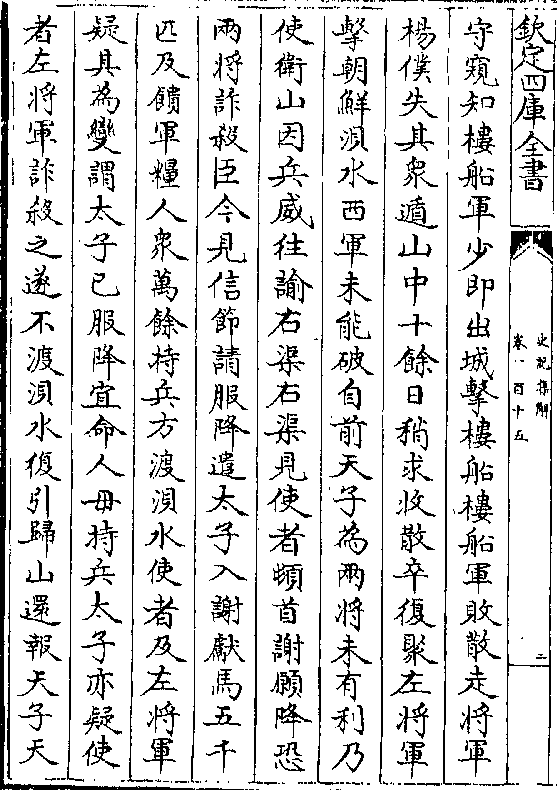 欽定四庫全書
史記集解
卷一百十五
二
守窺知樓船軍少即出城擊樓船樓船軍敗散走將軍
楊僕失其衆遁山中十餘日稍求收散卒復聚左將軍
擊朝鮮浿水西軍未能破自前天子為兩將未有利乃
使衛山因兵威往諭右渠右渠見使者頓首謝願降恐
兩将詐殺臣今見信節請服降遣太子入謝獻馬五千
匹及饋軍糧人衆萬餘持兵方渡浿水使者及左將軍
疑其為變謂太子已服降宜命人毋持兵太子亦疑使
者左將軍詐殺之遂不渡浿水復引歸山還報天子天